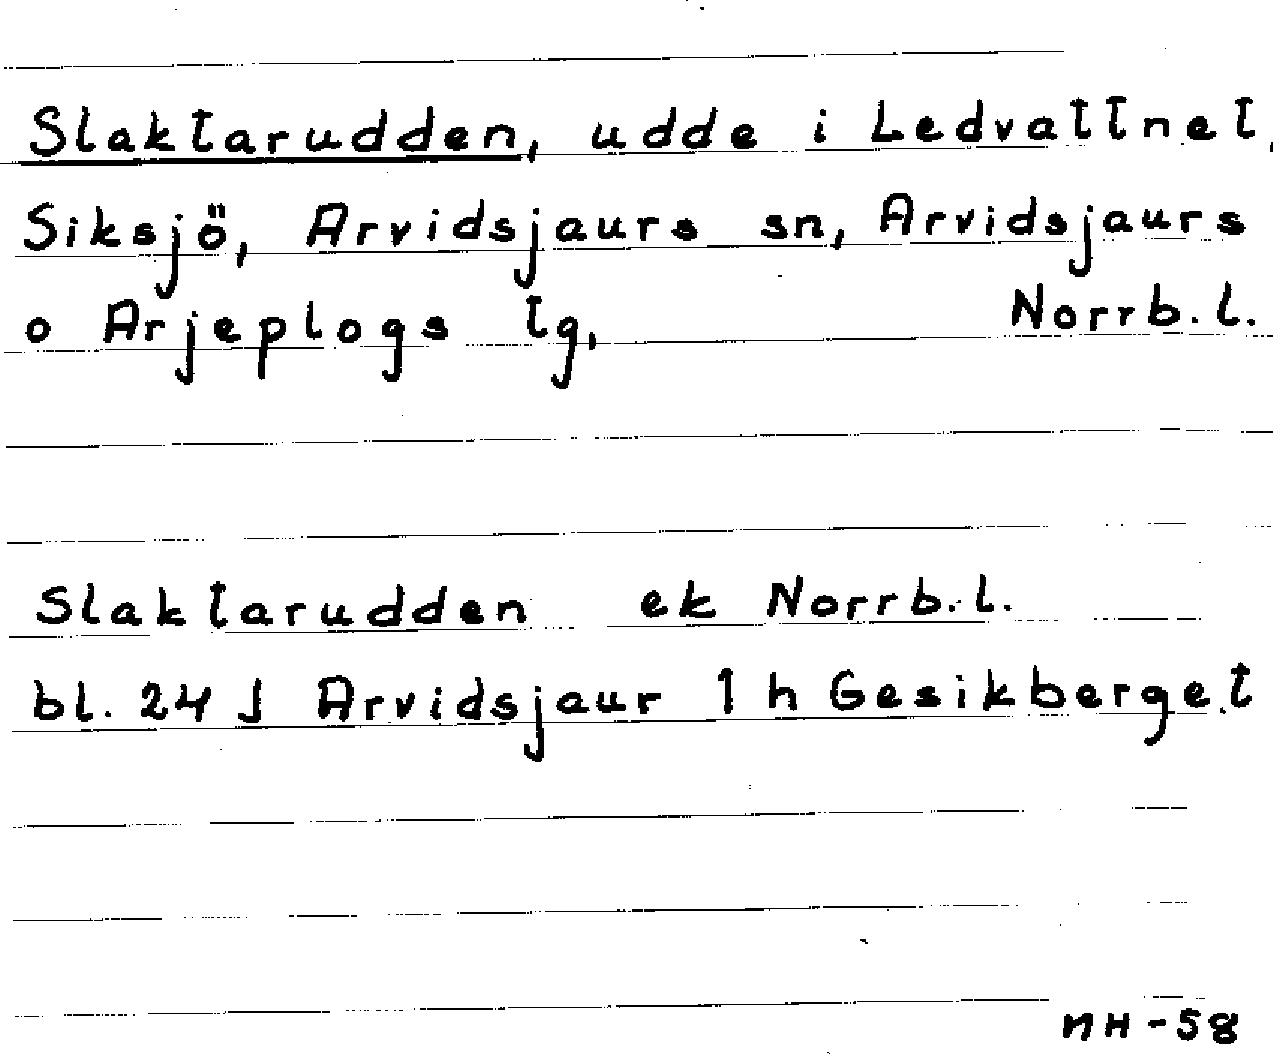 Slaktarudden, udde i Ledvattnet,
Siksjö, Arvidsjaurs sn, Arvidsjaurs
o Arjeplogs tg, Norrb.l.
Slaktarudden ek Norrb.l.
bl. 24 J Arvidsjaur 1 h Gesikberget
nH-58